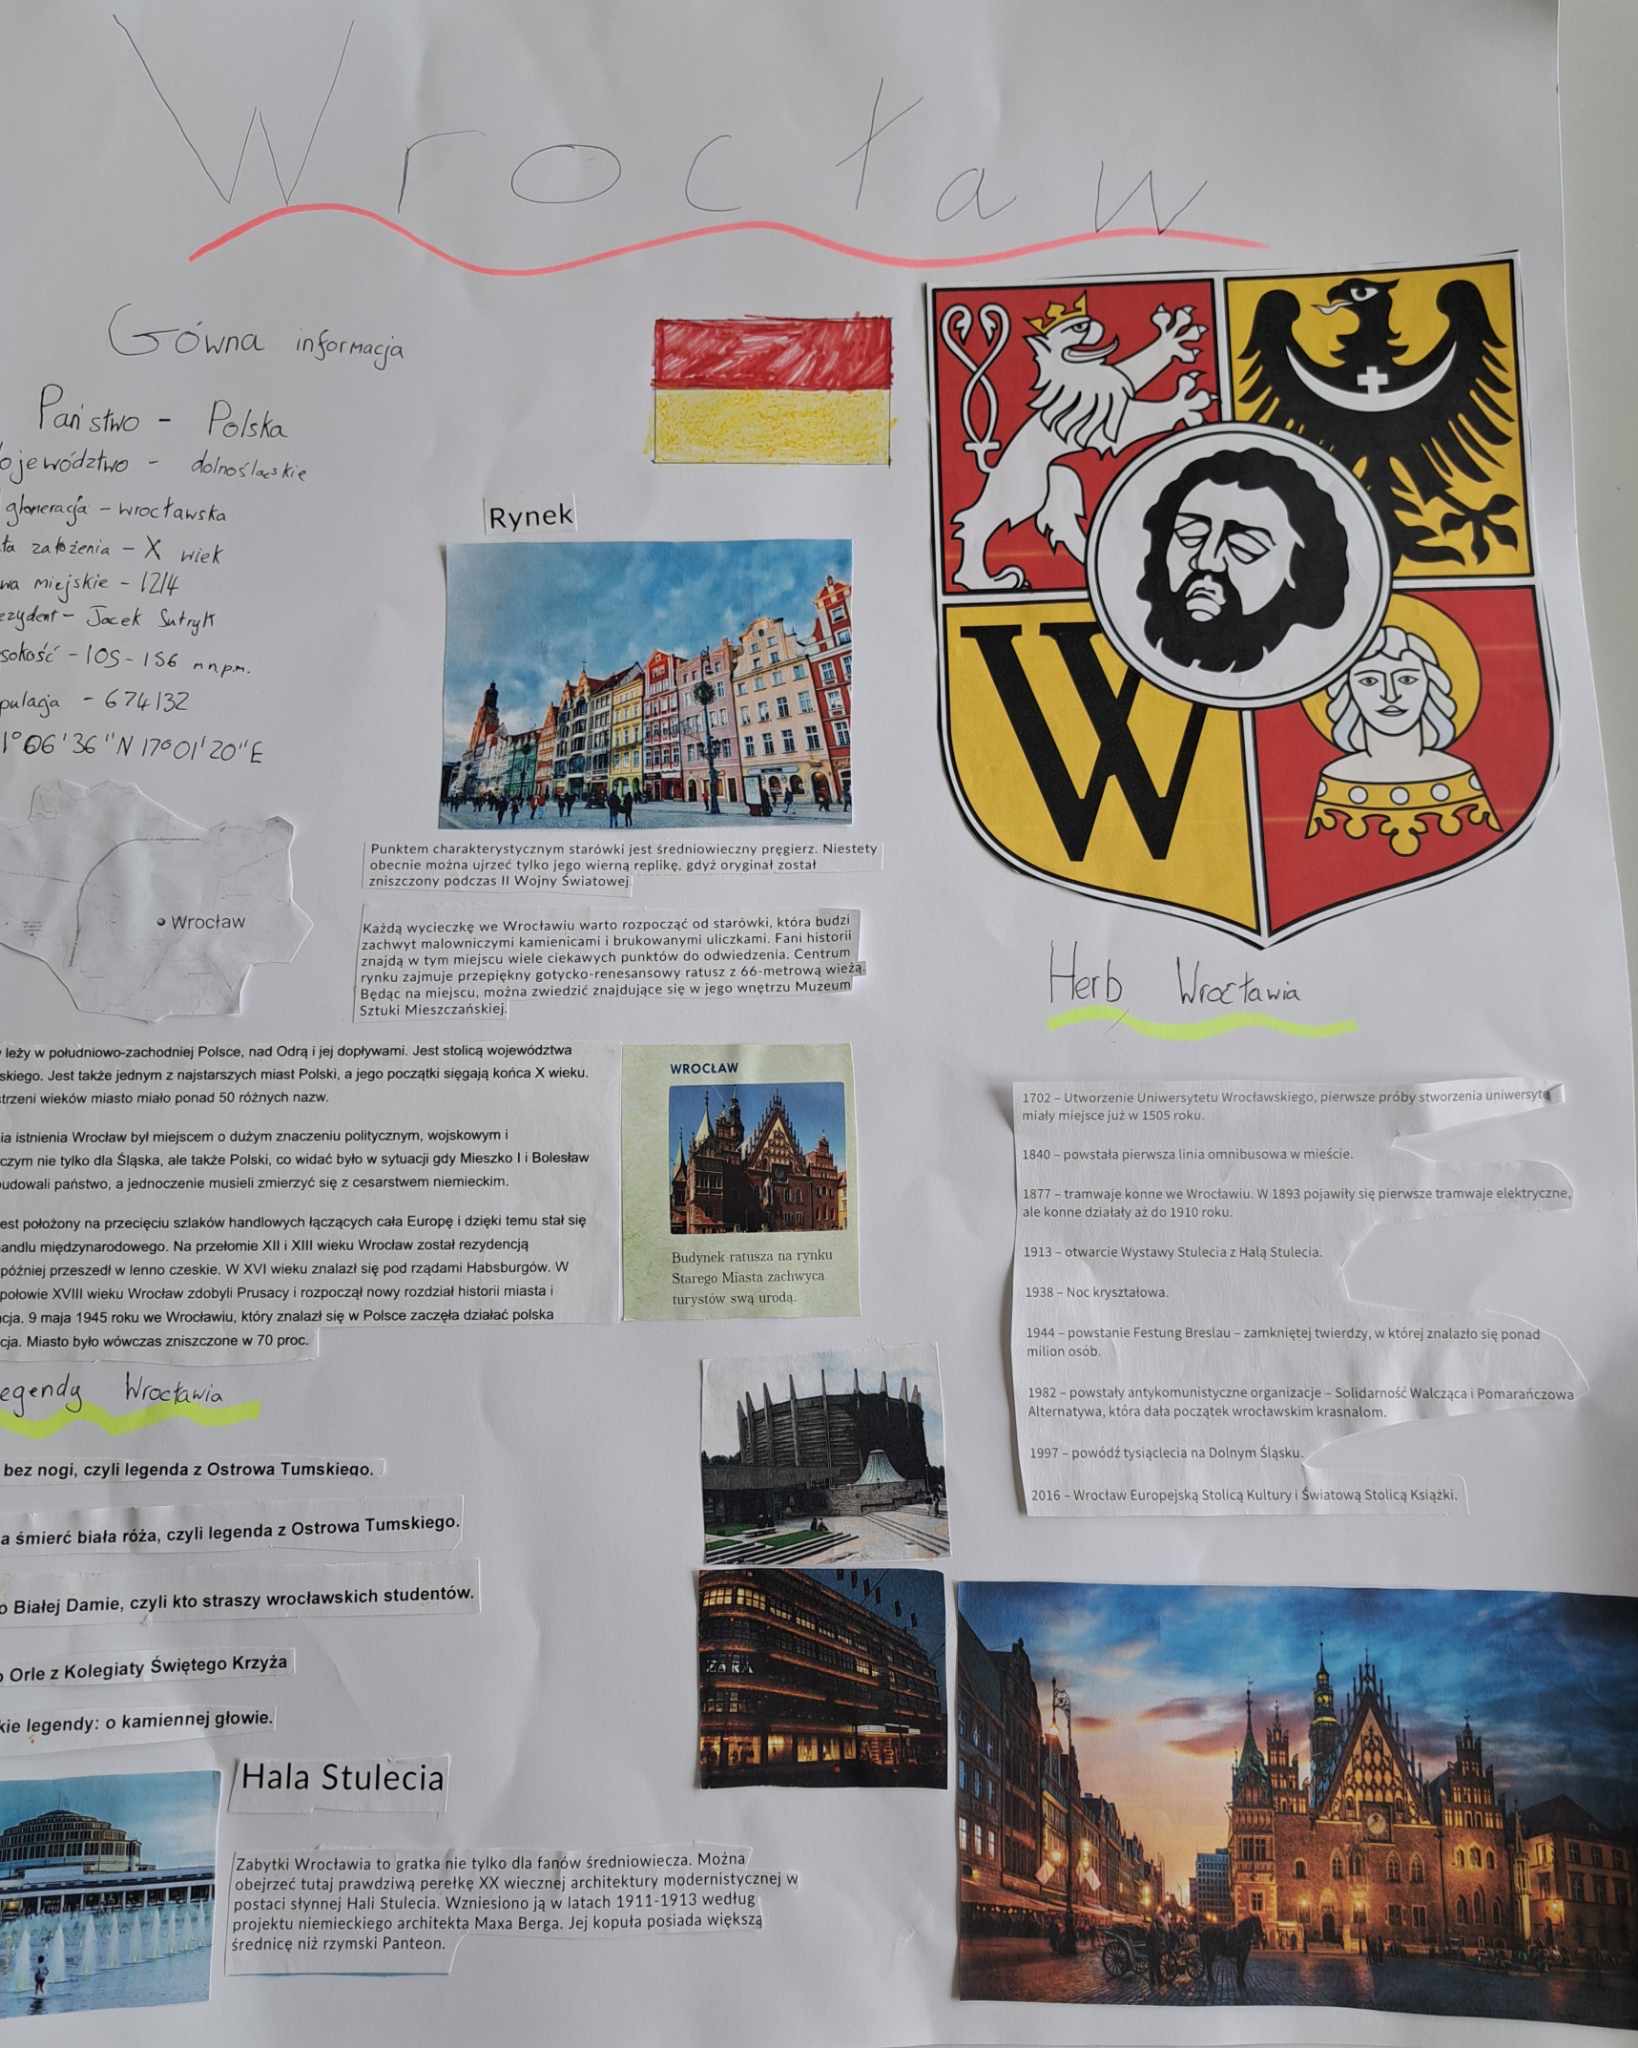 Wrocław
Gówna informacja
Państwo - Polska
ojewództwo - dolnośląskie
glomeracja - wrocławska
ta założenia - X wiek
wa miejskie - 1214
ezydent - Jacek Sutryk
sokość - 105 - 156 m n.p.m.
pulacja - 674132
1°06'36"N 17°01'20"E
Wrocław
Rynek
Punktem charakterystycznym starówki jest średniowieczny pręgierz. Niestety
obecnie można ujrzeć tylko jego wierną replikę, gdyż oryginał został
zniszczony podczas II Wojny Światowej
Każdą wycieczkę we Wrocławiu warto rozpocząć od starówki, która budzi
zachwyt malowniczymi kamienicami i brukowanymi uliczkami. Fani historii
znajdą w tym miejscu wiele ciekawych punktów do odwiedzenia. Centrum
rynku zajmuje przepiękny gotycko-renesansowy ratusz z 66-metrową wieżą.
Będąc na miejscu, można zwiedzić znajdujące się w jego wnętrzu Muzeum
Sztuki Mieszczańskiej.
W
Herb Wrocławia
leży w południowo-zachodniej Polsce, nad Odrą i jej dopływami. Jest stolicą województwa
skiego. Jest także jednym z najstarszych miast Polski, a jego początki sięgają końca X wieku.
strzeni wieków miasto miało ponad 50 różnych nazw.
ia istnienia Wrocław był miejscem o dużym znaczeniu politycznym, wojskowym i
czym nie tylko dla Śląska, ale także Polski, co widać było w sytuacji gdy Mieszko I i Bolesław
budowali państwo, a jednocznie musieli zmierzyć się z cesarstwem niemieckim.
est położony na przecięciu szlaków handlowych łączących cała Europę i dzięki temu stał się
handlu międzynarodowego. Na przełomie XII i XIII wieku Wrocław został rezydencją
później przeszedł w lenno czeskie. W XVI wieku znalazł się pod rządami Habsburgów. W
połowie XVIII wieku Wrocław zdobyli Prusacy i rozpoczął nowy rozdział historii miasta i
cja. 9 maja 1945 roku we Wrocławiu, który znalazł się w Polsce zaczęła działać polska
cja. Miasto było wówczas zniszczone w 70 proc.
WROCŁAW
Budynek ratusza na rynku
Starego Miasta zachwyca
turystów swą urodą.
1702 – Utworzenie Uniwersytetu Wrocławskiego, pierwsze próby stworzenia uniwersyte
miały miejsce już w 1505 roku.
1840 – powstała pierwsza linia omnibusowa w mieście.
1877 – tramwaje konne we Wrocławiu. W 1893 pojawiły się pierwsze tramwaje elektryczne,
ale konne działały aż do 1910 roku.
1913 – otwarcie Wystawy Stulecia z Halą Stulecia.
1938 – Noc kryształowa.
1944 – powstanie Festung Breslau – zamkniętej twierdzy, w której znalazło się ponad
milion osób.
1982 – powstały antykomunistyczne organizacje – Solidarność Walcząca i Pomarańczowa
Alternatywa, która dała początek wrocławskim krasnalom.
1997 – powódź tysiąclecia na Dolnym Śląsku.
2016 – Wrocław Europejską Stolicą Kultury i Światową Stolicą Książki.
egendy Wrocławia
bez nogi, czyli legenda z Ostrowa Tumskiego.
a śmierć biała róża, czyli legenda z Ostrowa Tumskiego.
o Białej Damie, czyli kto straszy wrocławskich studentów.
o Orle z Kolegiaty Świętego Krzyża
kie legendy: o kamiennej głowie.
Hala Stulecia
Zabytki Wrocławia to gratka nie tylko dla fanów średniowiecza. Można
obejrzeć tutaj prawdziwą perełkę XX wiecznej architektury modernistycznej w
postaci słynnej Hali Stulecia. Wzniesiono ją w latach 1911-1913 według
projektu niemieckiego architekta Maxa Berga. Jej kopuła posiada większą
średnicę niż rzymski Panteon.